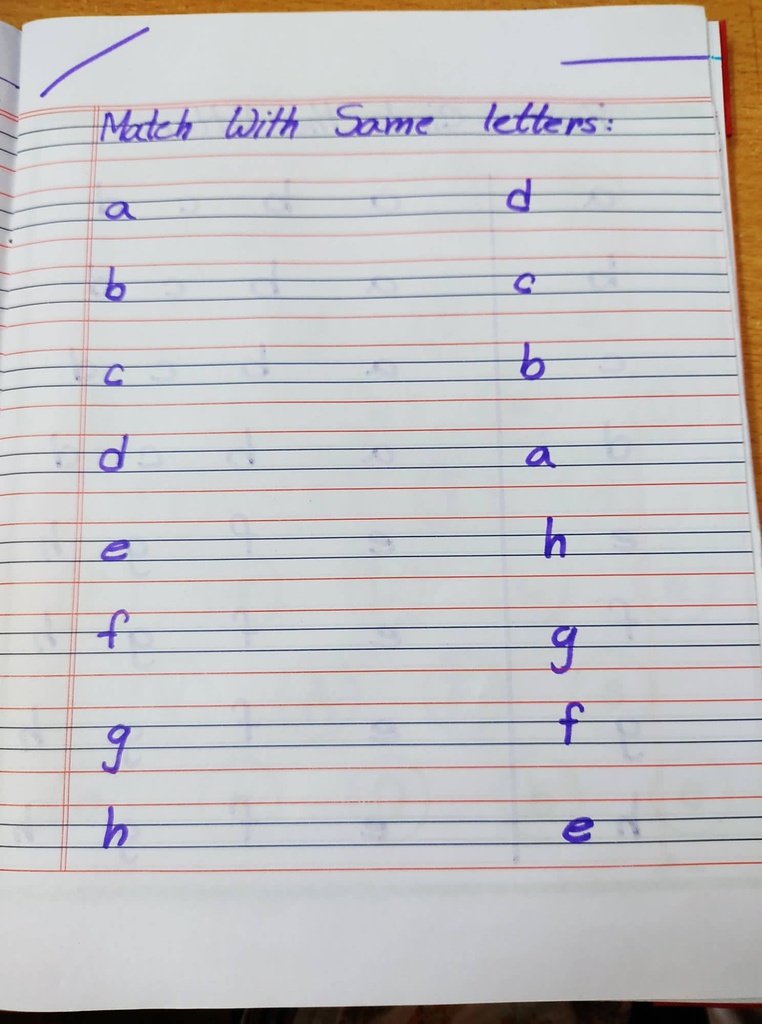 Match With Same letters:
a d
b c
c b
d a
e h
f g
g f
h e